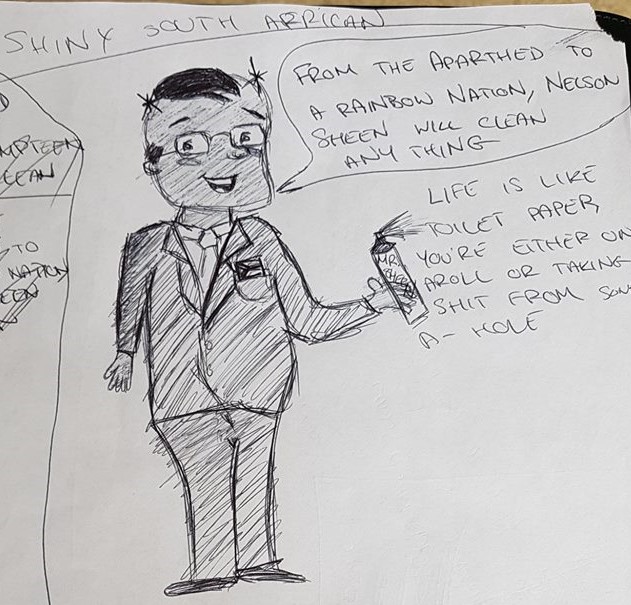 SHINY SOUTH AFRICAN
FROM THE APARTHED TO
A RAINBOW NATION, NELSON
SHEEN WILL CLEAN
ANY THING
LIFE IS LIKE
TOILET PAPER,
YOU'RE EITHER ON
AROLL OR TAKING
SHIT FROM SOM
A-HOLE
MR
SHEEN
TO
NATION
EEN
MPTEEN
LEAN